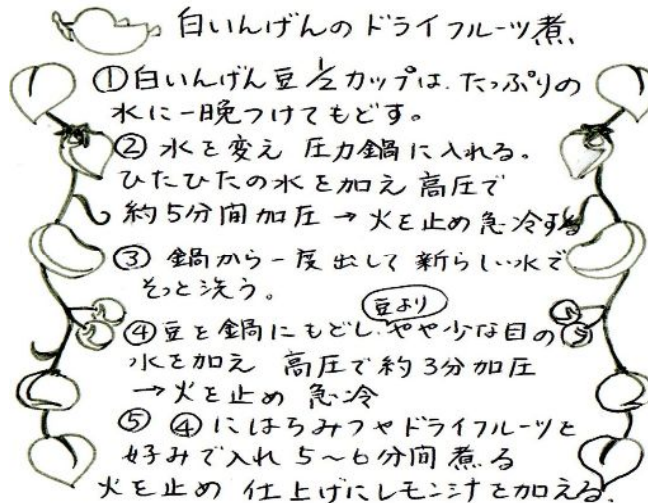 白いんげんのドライフルーツ煮
①白いんげん豆1/2カップは、たっぷりの
水に一晩つけてもどす。
②水を変え 圧力鍋に入れる。
ひたひたの水を加え高圧で
約5分間加圧→火を止め急冷する
③鍋から一度出して新らしい水で
そっと洗う。
豆より
④豆を鍋にもどし、やや少な目の
水を加え 高圧で約3分加圧
→火を止め 急冷
⑤④にはちみつやドライフルーツを
好みで入れ5〜6分間煮る
火を止め 仕上げにレモン汁を加える。